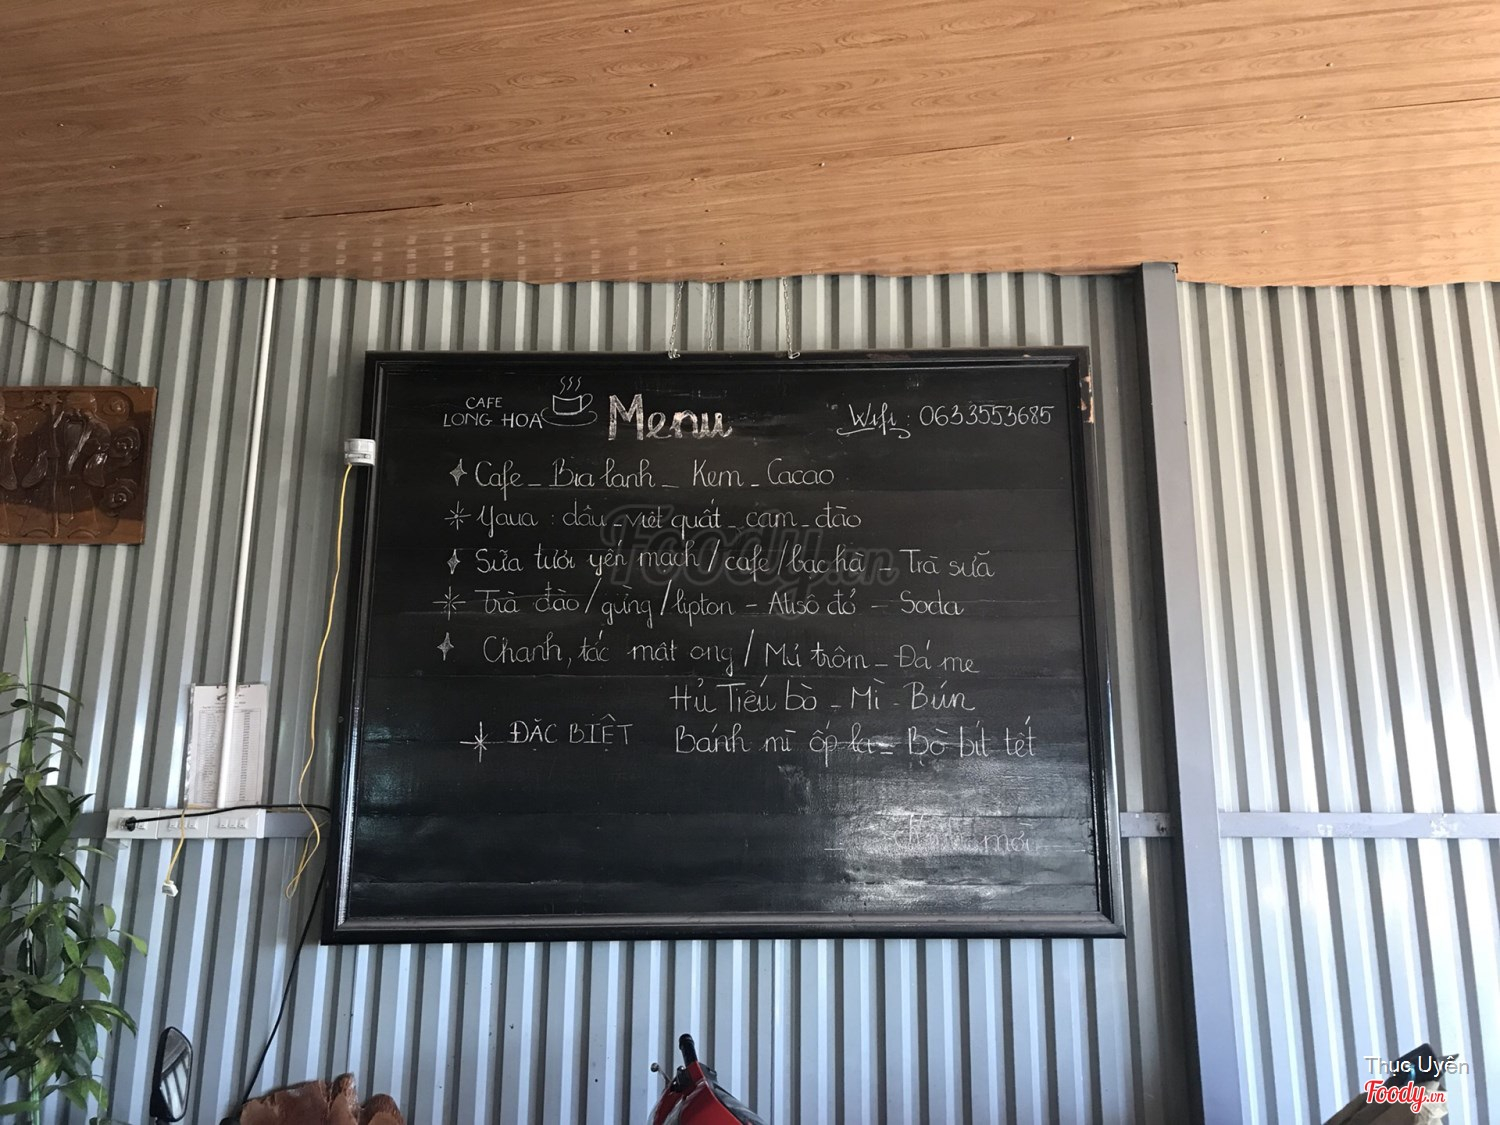 CAFE
LONG HOA
Menu
Wifi : 0633553685
Cafe - Bia lạnh - Kem - Cacao
Yaua : dâu - việt quất - cam - đào
Sữa tươi yến mạch / cafe / bạc hà - Trà sữa
Trà đào / gừng / lipton - Atisô đỏ - Soda
Chanh, tắc mật ong / Mủ trôm - Đá me
Hủ Tiếu bò - Mì - Bún
ĐẶC BIỆT Bánh mì ốp la - Bò bít tết
mời
Foody.vn
Thục Uyên
Foody.vn